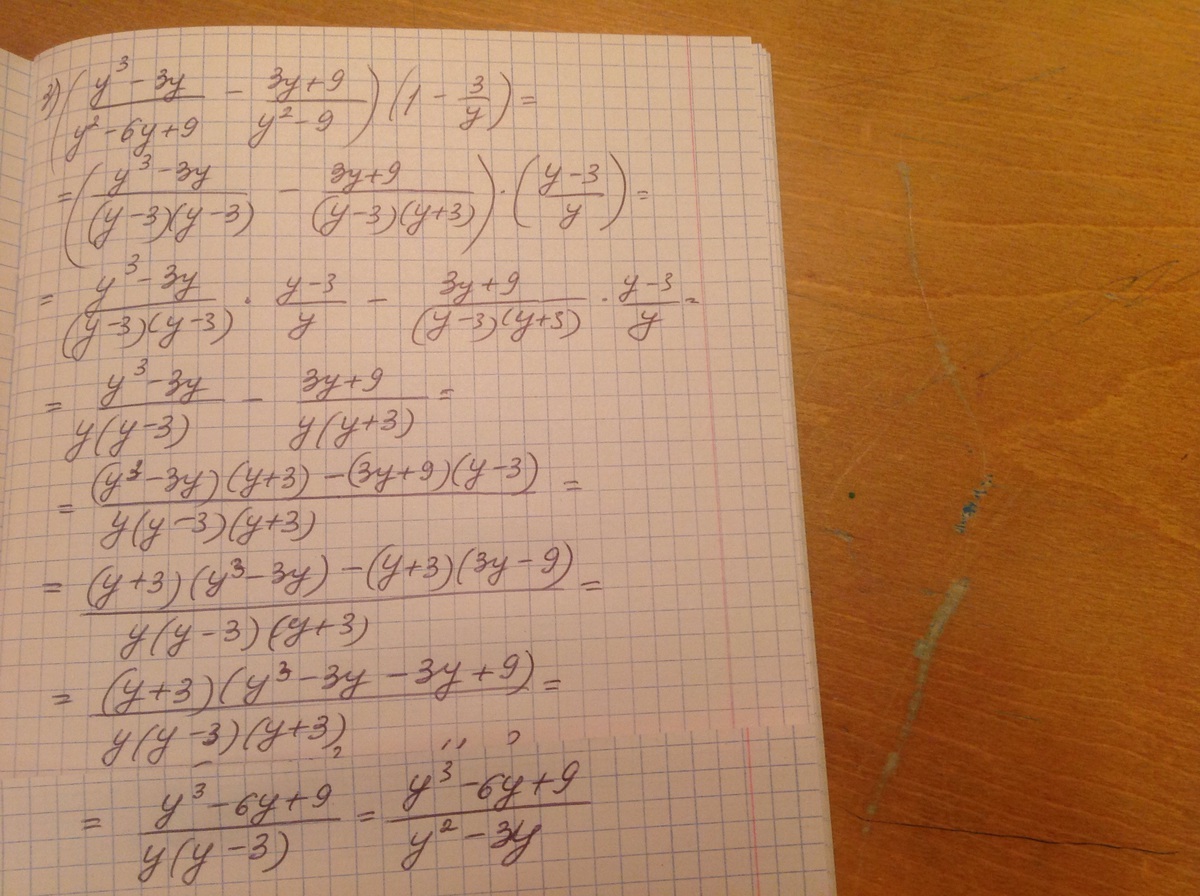 3) ( (y³ - 3y)/(y² - 6y + 9) - (3y + 9)/(y² - 9) ) (1 - 3/y) =
= ( (y³ - 3y)/((y - 3)(y - 3)) - (3y + 9)/((y - 3)(y + 3)) ) · ( (y - 3)/y ) =
= (y³ - 3y)/((y - 3)(y - 3)) · (y - 3)/y - (3y + 9)/((y - 3)(y + 3)) · (y - 3)/y =
= (y³ - 3y)/(y(y - 3)) - (3y + 9)/(y(y + 3)) =
= ((y³ - 3y)(y + 3) - (3y + 9)(y - 3))/(y(y - 3)(y + 3)) =
= ((y + 3)(y³ - 3y) - (y + 3)(3y - 9))/(y(y - 3)(y + 3)) =
= ((y + 3)(y³ - 3y - 3y + 9))/(y(y - 3)(y + 3)) =
= (y³ - 6y + 9)/(y(y - 3)) = (y³ - 6y + 9)/(y² - 3y)